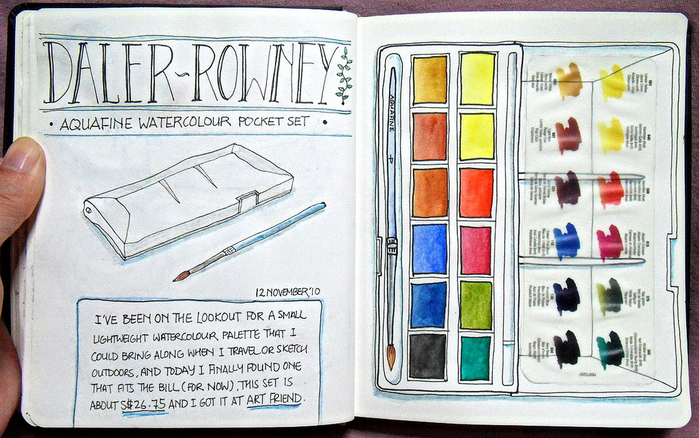 DALER~ROWNEY
• AQUAFINE WATERCOLOUR POCKET SET •
12 NOVEMBER '10
I'VE BEEN ON THE LOOKOUT FOR A SMALL
LIGHTWEIGHT WATERCOLOUR PALETTE THAT I
COULD BRING ALONG WHEN I TRAVEL OR SKETCH
OUTDOORS, AND TODAY I FINALLY FOUND ONE
THAT FITS THE BILL (FOR NOW). THIS SET IS
ABOUT S$26.75 AND I GOT IT AT ART FRIEND.
AQUAFINE